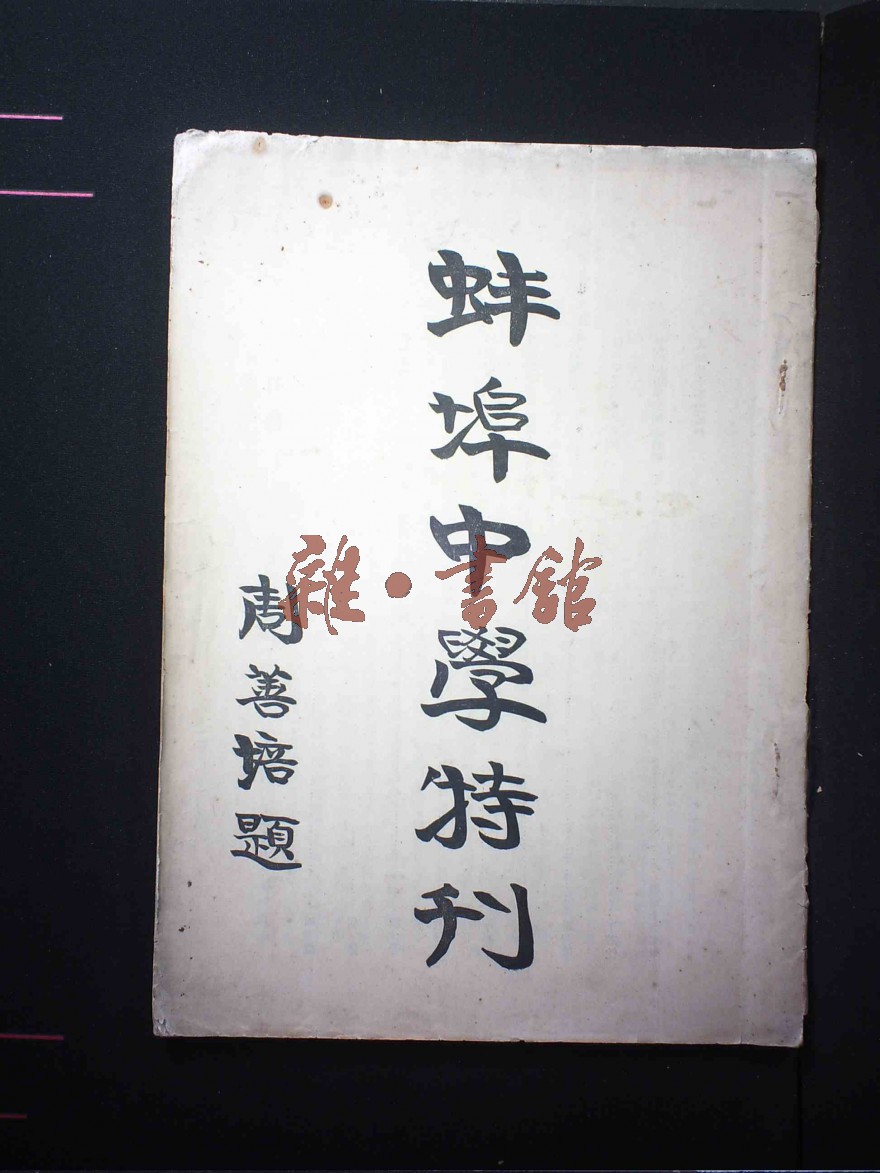 蚌埠中學特刊
周善培題
雜·書館